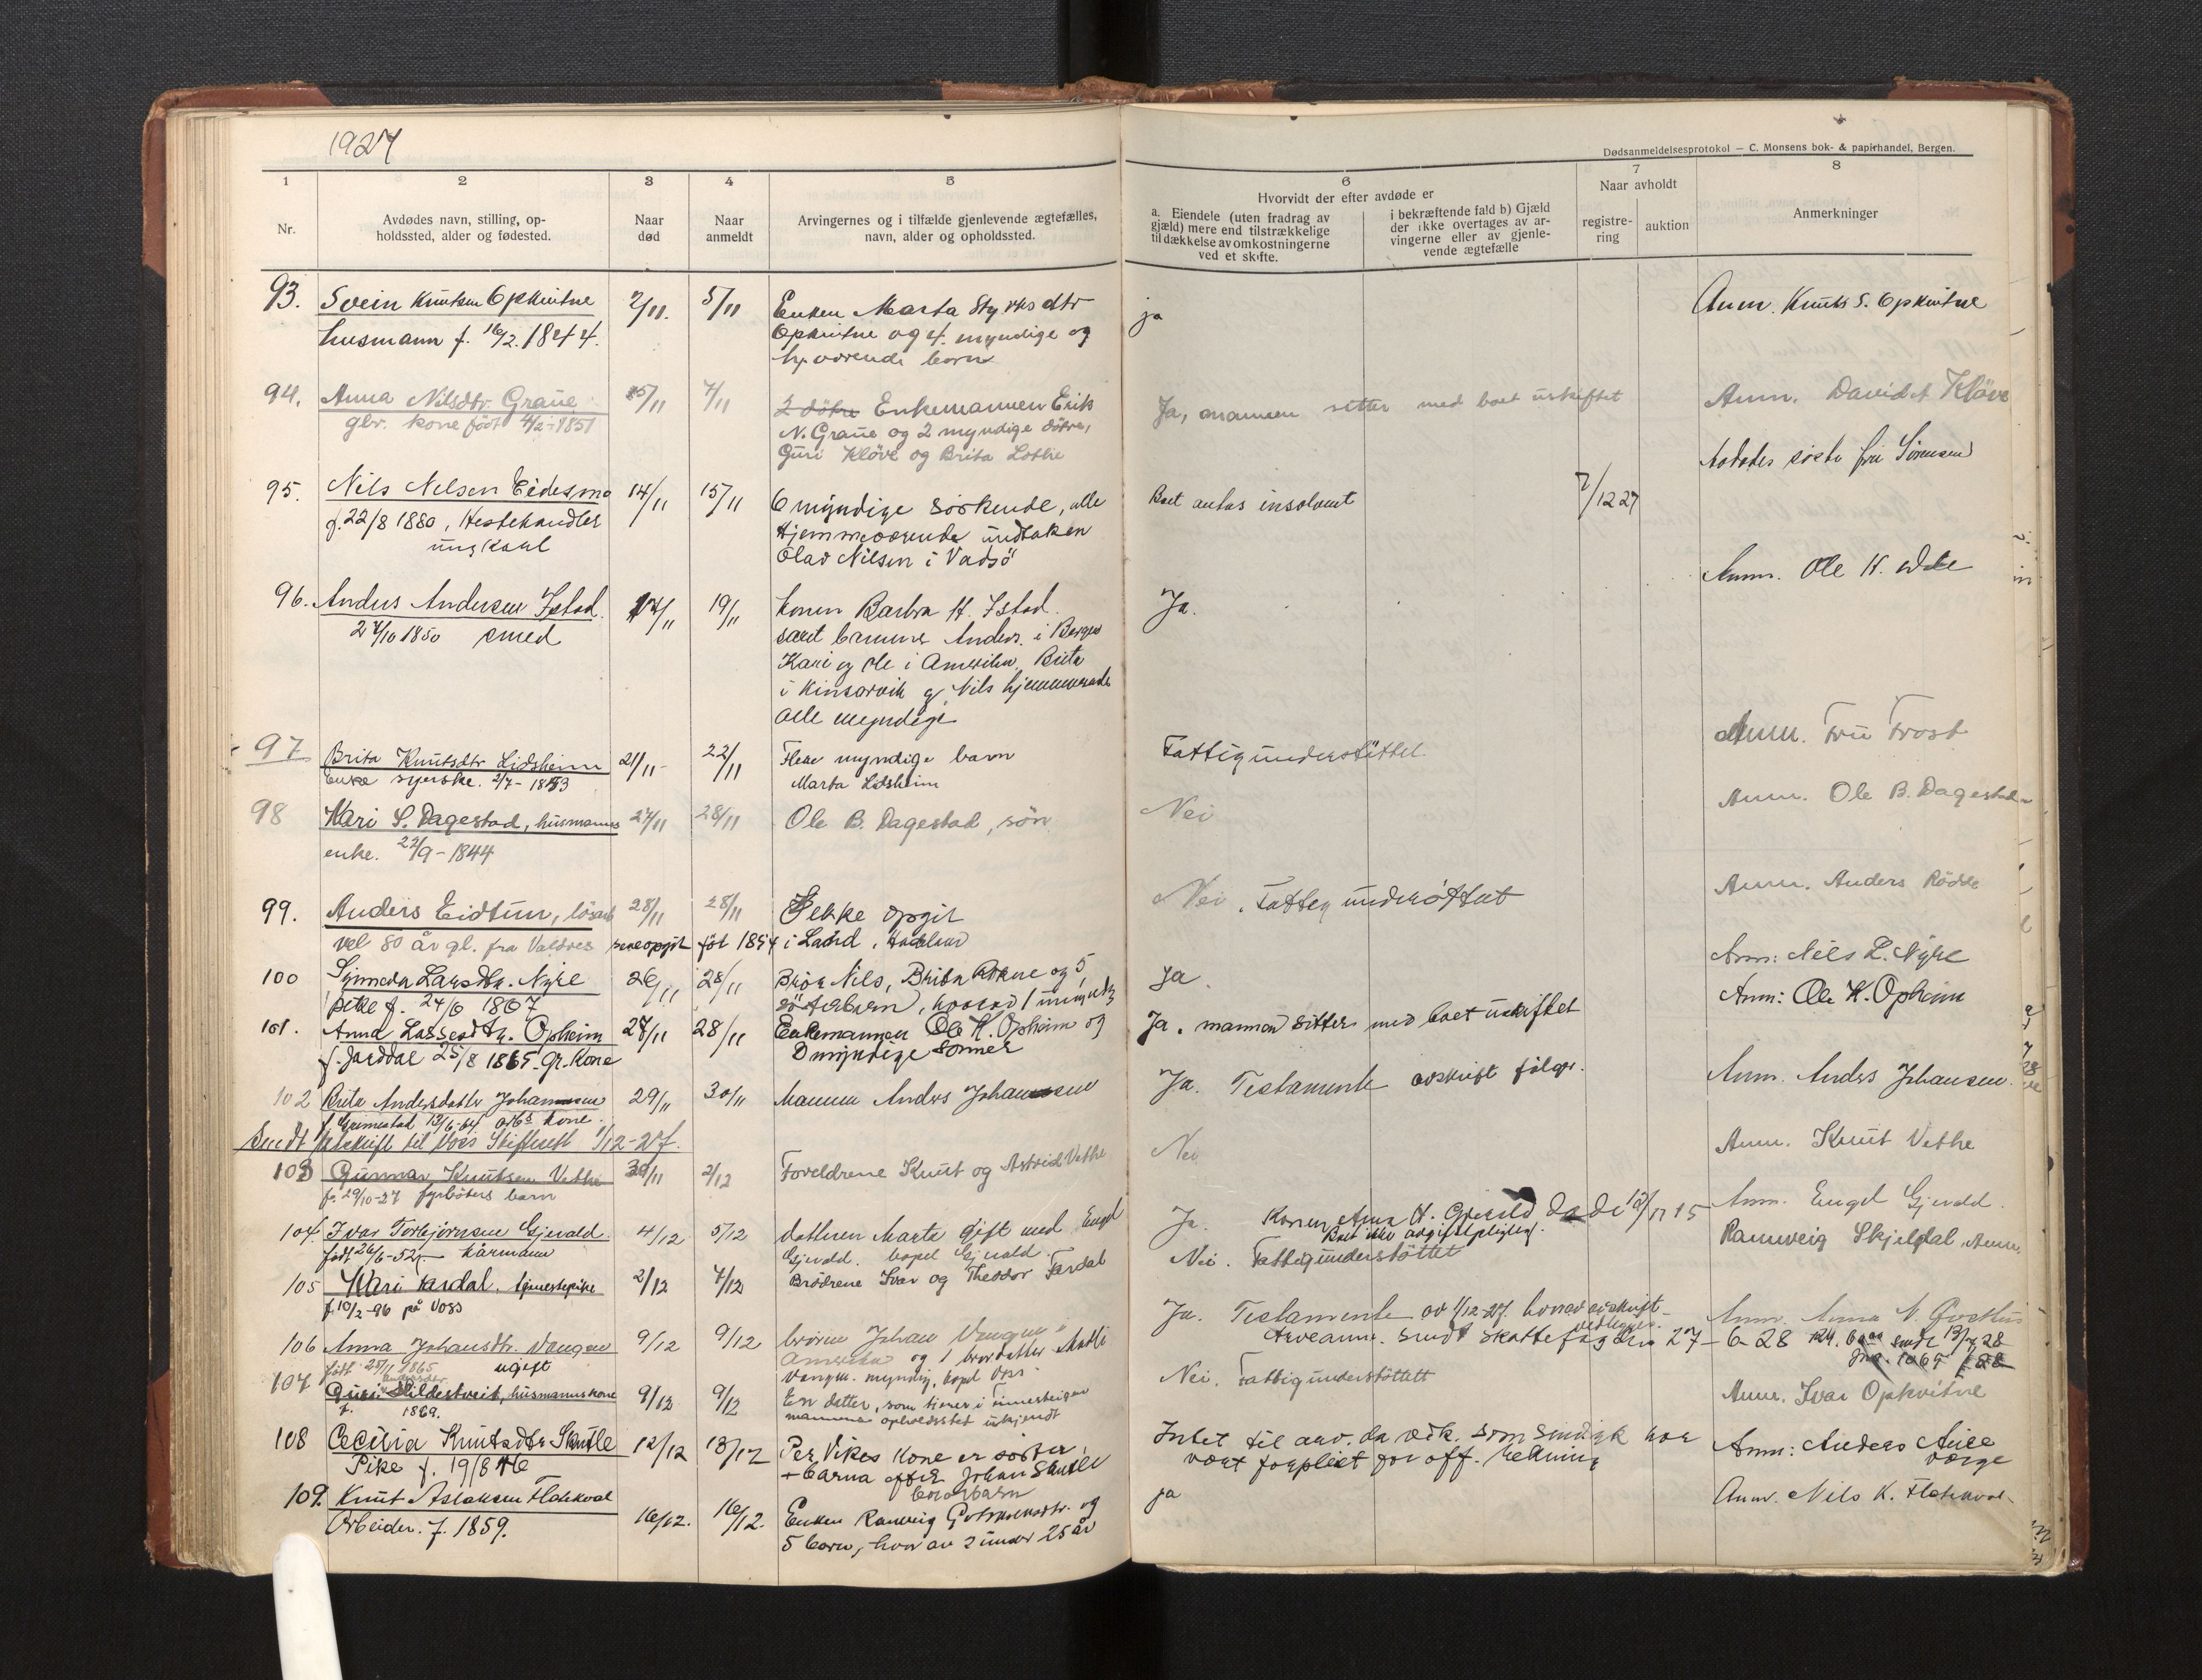 1927
Dødsanmeldelsesprotokol — C. Monsens bok- & papirhandel, Bergen.
1
2
3
4
5
6
7
8
Nr.
Avdødes navn, stilling, op-
holdssted, alder og fødested.
Naar
død
Naar
anmeldt
Arvingernes og i tilfælde gjenlevende ægtefælles,
navn, alder og opholdssted.
Hvorvidt der efter avdøde er
a. Eiendele (uten fradrag av
gjæld) mere end tilstrækkelige
til dækkelse av omkostningerne
ved et skifte.
i bekræftende fald b) Gjæld
der ikke overtages av ar-
vingerne eller av gjenle-
vende ægtefælle
Naar avholdt
registre-
ring
auktion
Anmerkninger
93. Svein Knutsen Opkvitne 2/11. 5/11 Enken Marta Styrksdtr ja Anm. Knut S. Opkvitne
husmann f. 16/2. 1844. Opkvitne og 4 myndige og
hj. værende born
94. Anna Nilsdtr. Graue 5/11 7/11 2 døtre Enkemannen Erik Ja, mannen sitter med boet uskiftet Anm. David Kløve
gbr. kone født 4/2-1851 N. Graue og 2 myndige døtre,
Guri Kløve og Brita Lothe
95. Nils Nilsen Eidesmo 14/11 15/11 6 myndige søskende, alle Boet antas insolvent 7/12 27 søster fru Sørensen
f. 22/8 1880, Hestehandler hjemmeværende undtaken
ungkarl Olav Nilsen i Vadsö
96. Anders Andersen Istad. 17/11 19/11 konen Barbra H. Istad. Ja. Anm. Ole H.
27/10 1850 smed samt barnene Anders i Bergen
Kari og Ole i Amerika, Brita
i Kinsarvik og Nils hjemmeværende
alle myndige
97 Brita Knutsdtr Lidsheim 21/11- 22/11 Flere myndige barn Fattigunderstøttet. Anm. Fru Frost
Enke syerske. 2/7-1853 Marta Lidsheim
98 Kari S. Dagestad, husmanns 27/11 28/11 Ole B. Dagestad, søn Nei Anm. Ole B. Dagestad
enke. 22/9-1844
99. Anders Eidtun, løsarb 28/11 28/11 Ikke opgit Nei. Fattigunderstøttet Anm. Anders Rödse
vel 80 år gl. fra Valdres sene opgit føt 1854 i Lærd,
100 Synneva Larsdtr. Nyre 26/11 28/11 Bror Nils, Brita og 5 Ja. Anm: Nils L. Nyre
pike f. 24/6 1867 søsterbarn, hvorav 1 umyndig
101. Anna Lassesdtr. Opheim 27/11 28/11 Enkemannen Ole K. Opheim og Ja. mannen sitter med boet uskiftet Anm: Ole K. Opheim
f. Jarddal 25/8 1865. Gr. Kone 2 myndige sønner
102 Brita Andersdatter Johannesen 29/11 30/11 Mannen Anders Johannesen Ja. Testamente avskrift følger. Anm. Anders Johansen
f Grimestad 13/6-64 arb. kone.
Sendt avskrift til Voss Skifterett 1/12-27.
103 Gunnar Knutsen Vethe 30/11 2/12 Foreldrene Knut og Astrid Vethe Nei Anm. Knut Vethe
fø. 29/10-27 fyrbøters barn
104. Ivar Torbjørnsen Gjerald. 4/12 5/12 datteren Marta gift med Engel Ja. Konen Anna H. Gjerald døde 12/11 15 Anm. Engel Gjerald.
født 26/6-52. kårmann Gjerald. bopel Gjerald. Boet ikke avgiftspligtig.
105 Kari Fardal. tjenestepike 2/12 7/12 Brødrene Ivar og Theodor Fardal Nei. Fattigunderstøttet Rannveig Skjeldal. Anm.
f. 10/2-96 på Voss
106 Anna Johansdtr. Vangen 9/12 9/12 broren Johan Vangen i Ja. Testamente av 1/12-27. hvorav avskrift vedlegges. Anm. Anna N.
født 25/11 1865 ugift Amerika og 1 brordatter Matli Arveanm. sendt skattefogden 27-6 28 sendt 13/7 28
Vangen. myndig, bopel Voss
107 Guri Hildestveit, husmannskone 9/12 9/12 En datter, som tjener i Nei. Fattigunderstøttett Anm. Ivar Opkvitne
f. 1869. mannens opholdsstet ukjendt
108 Cecilia Knutsdtr Skutle 12/12 13/12 Per Vikes kone er søster, Intet til arv. da vedk. som sindsyk har Anm: Anders
Pike f. 19/8 46 + barna efter Johan Skutle vært forpleiet for off. rekning verge
brorbarn
109. Knut Aslaksen Flatekval 16/12. 16/12. Enken Ranveig og ja Anm. Nils K. Flatekval.
Arbeider. f. 1859. 5 born, hvor av 2 under 25 år